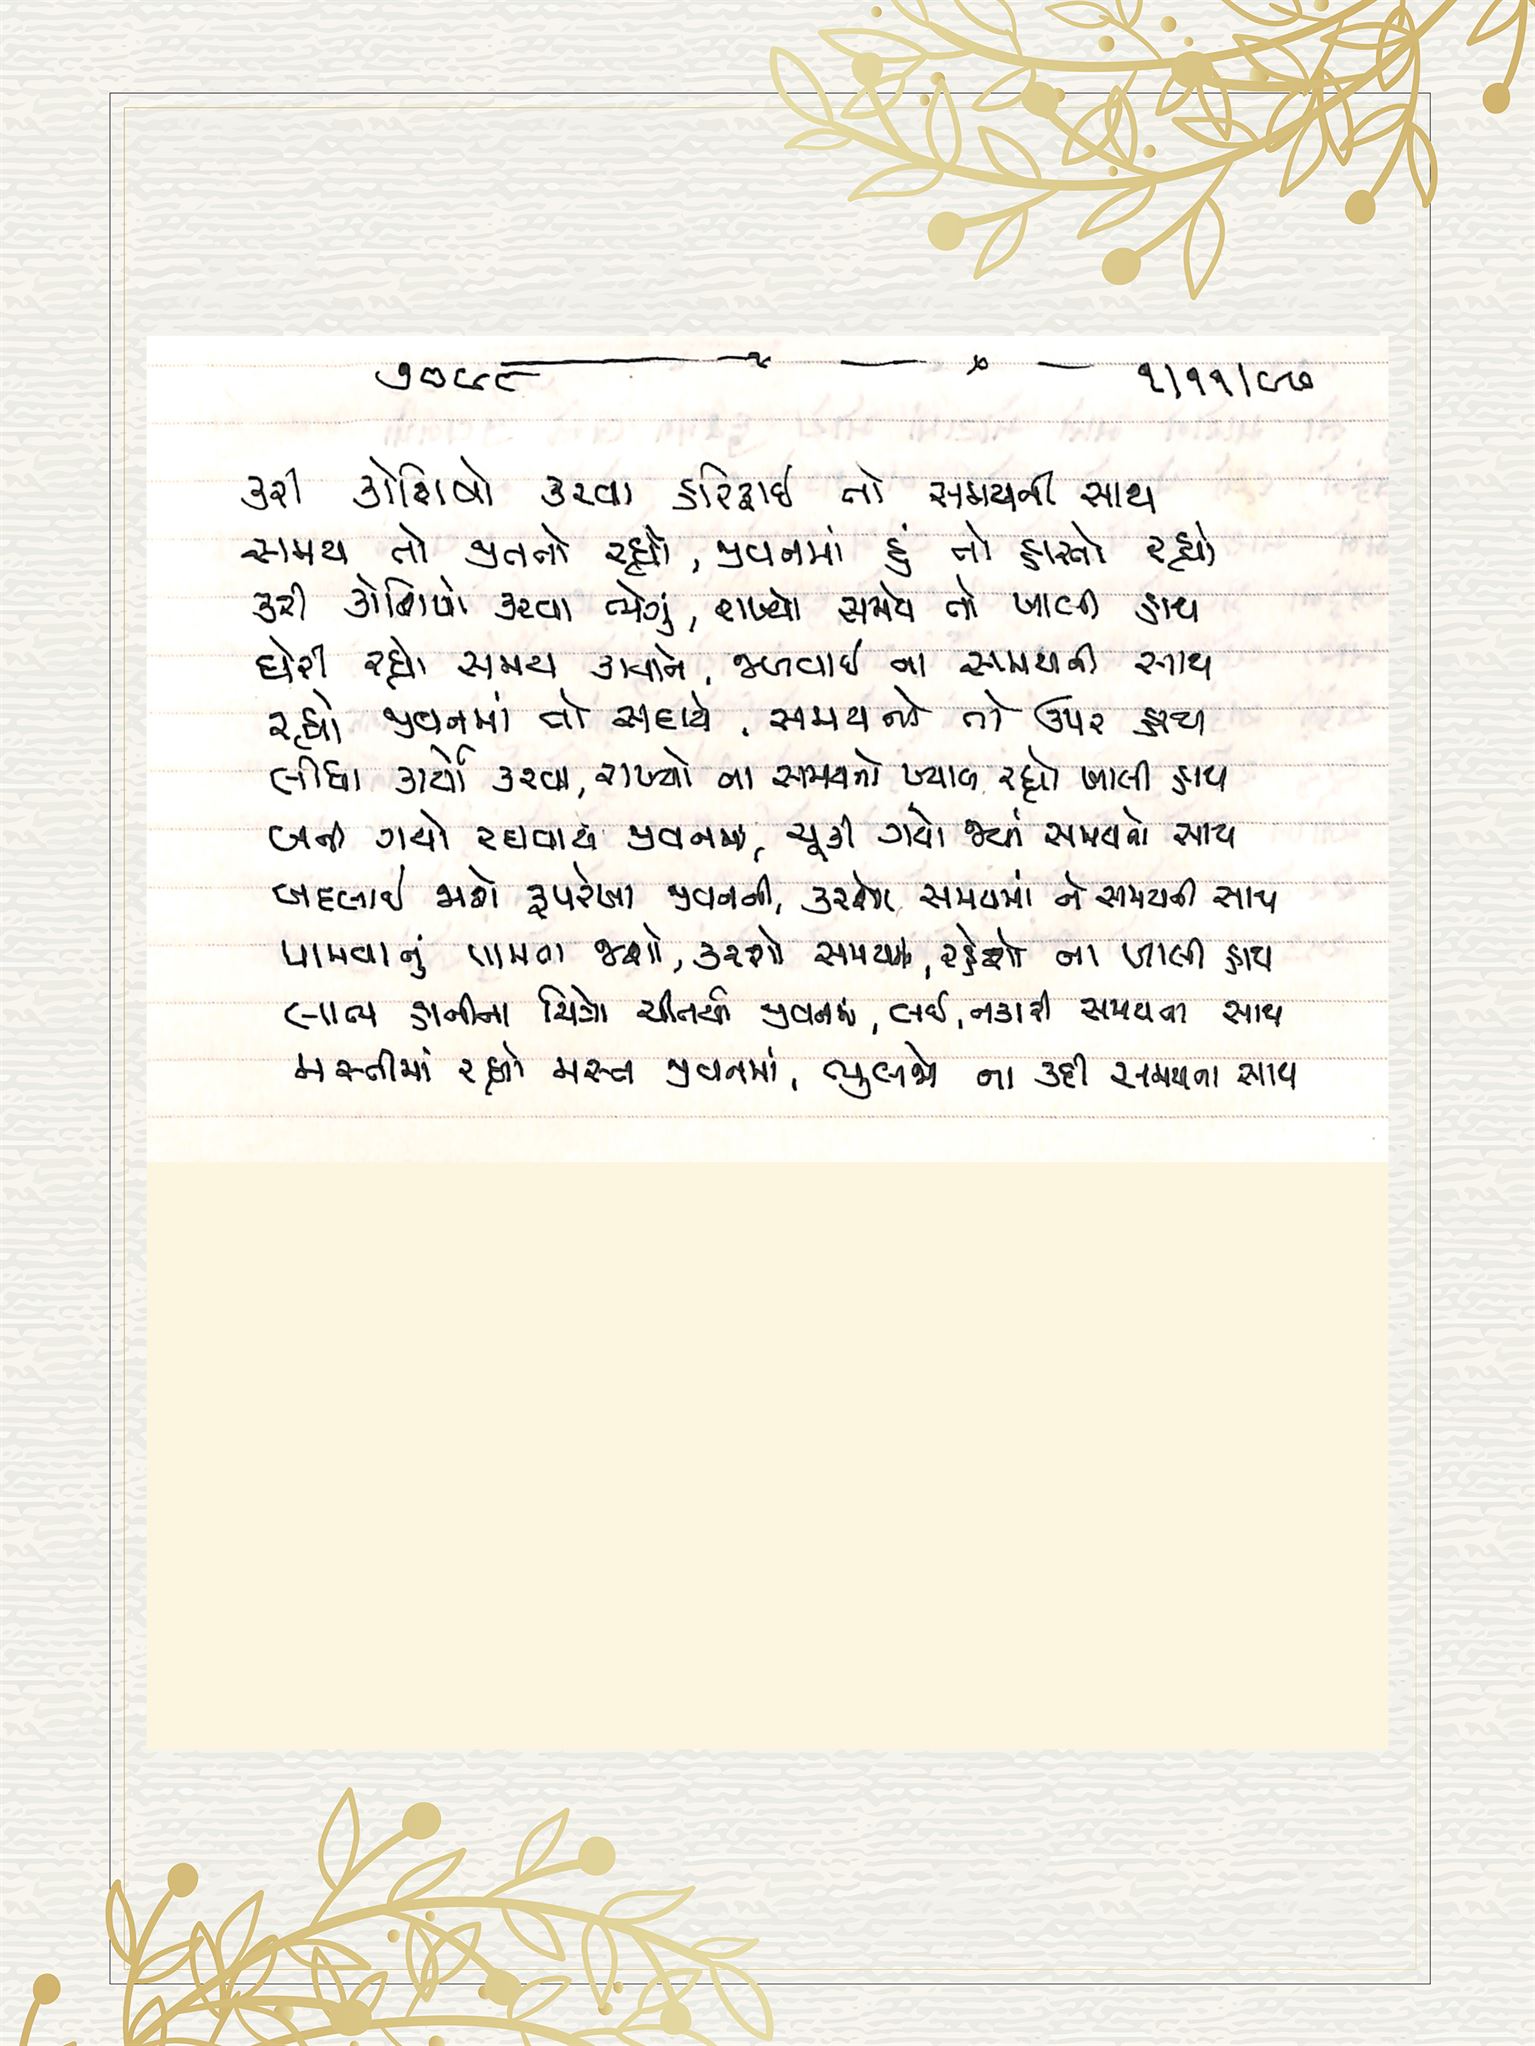 ૭૦૯૯ ૧/૧૧/૯૭
કરી કોશિશો કરવા હરિફાઈ તો સમયની સાથ
સમય તો જીતતો રહ્યો, જીવનમાં હું તો હારતો રહ્યો
કરી કોશિશો કરવા ભેગું, રાખ્યા સમયે તો ખાલી હાથ
ઘેરી રહ્યો સમય કાયાને, જળવાઈ ના સમયની સાથ
રહ્યો જીવનમાં તો સદાયે, સમયનો તો ઉપર હાથ
લીધા કાર્યો કરવા, રાખ્યો ના સમયનો ખ્યાલ રહ્યો ખાલી હાથ
બની ગયો રઘવાયો જીવનમાં, ચૂકી ગયો જ્યાં સમયનો સાથ
બદલાઈ જાશે રૂપરેખા જીવનની, સમયમાં ને સમયની સાથ
પામવાનું પામતા જાશો, કરશો સમયમાં, રહેશો ના ખાલી હાથ
લાભ હાનીના ચિત્રો ચીતર્યા જીવનમાં, લઈ, નકારી સમયના સાથ
મસ્તીમાં રહ્યો મસ્ત જીવનમાં, ભુલજો ના કદી સમયના સાથ